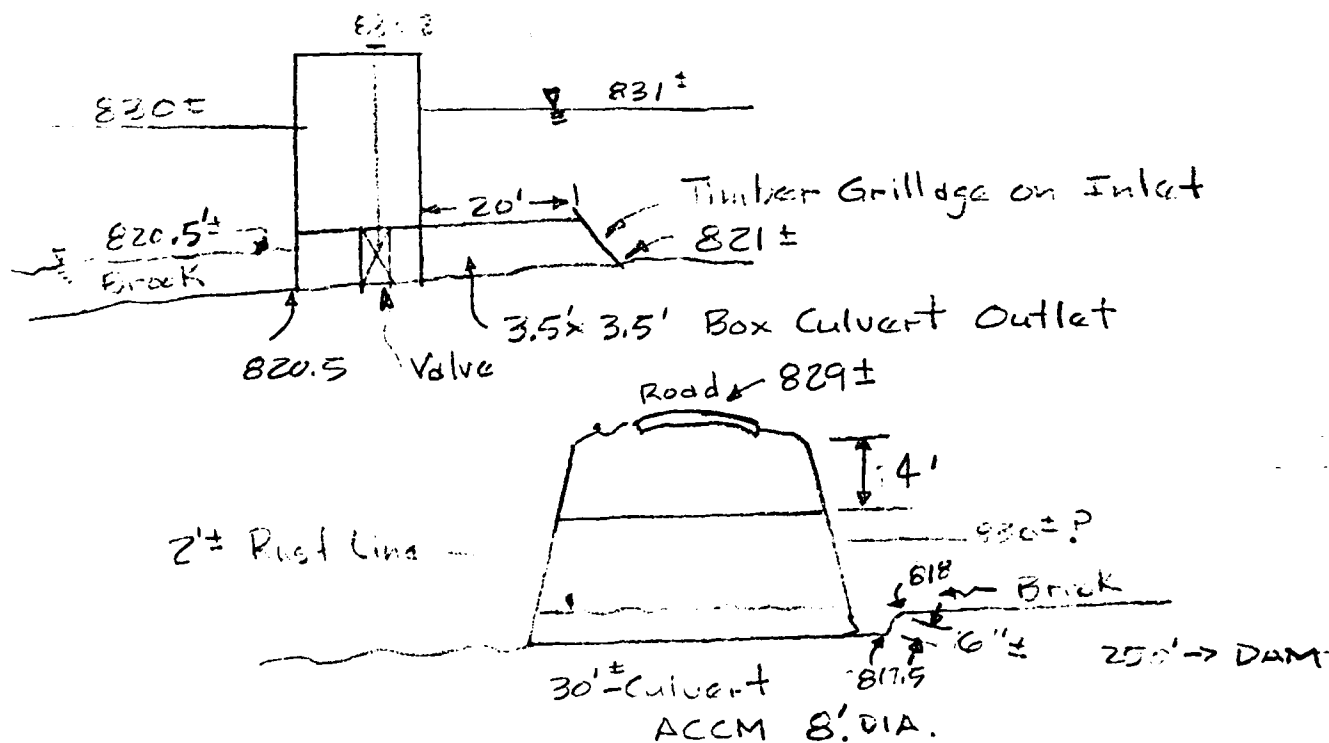 831 ±
20'
Timber Grillage on Inlet
820.5'±
821 ±
3.5' x 3.5' Box Culvert Outlet
820.5
Valve
Road
829 ±
4'
2'± Rust Line
818
6" ±
817.5
DAM
30'± Culvert
ACCM 8' DIA.